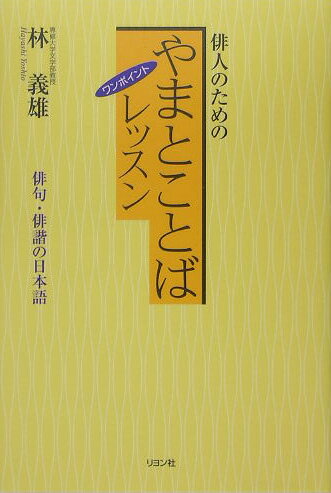 俳人のための
やまとことば
ワンポイント
レッスン
俳句・俳諧の日本語
専修大学文学部教授
林 義雄
Hayashi Yoshio
リヨン社